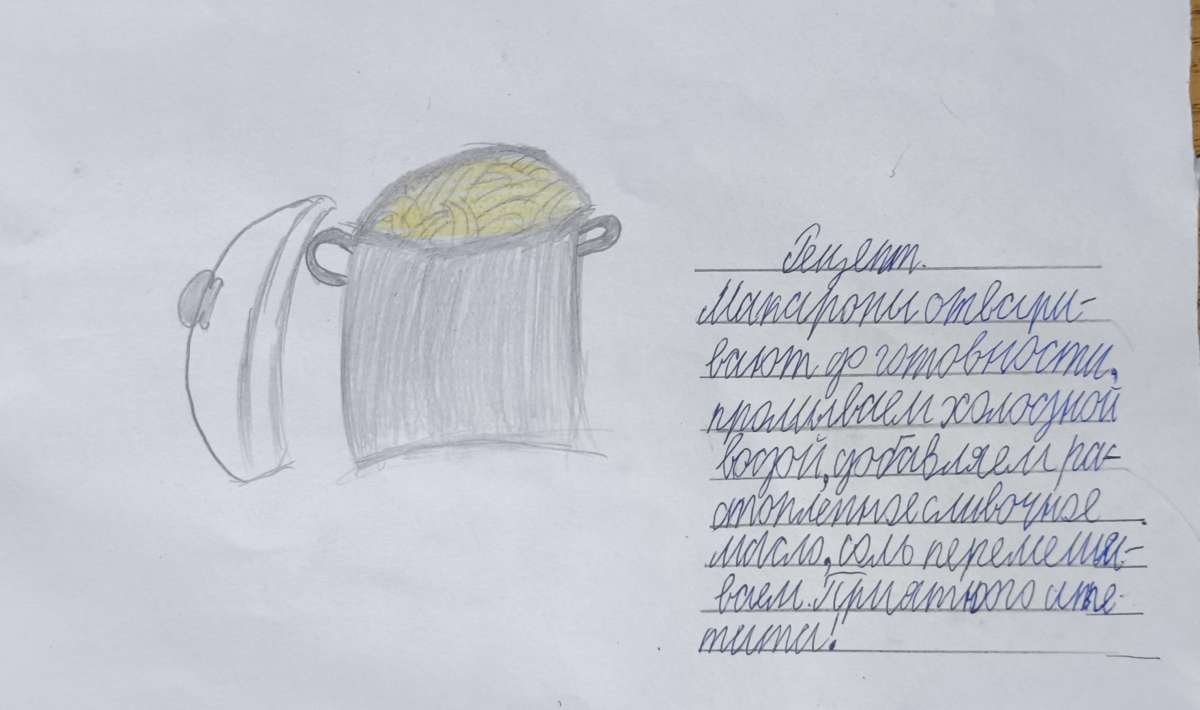 Рецепт.
Макароны отвари-
вают до готовности,
промываем холодной
водой, добавляем ра-
стопленное сливочное
масло, соль перемеши-
ваем. Приятного аппе-
тита!